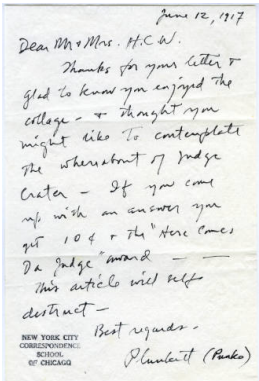 June 12, 1917
Dear Mr & Mrs. H.C.W.
Thanks for your letter &
glad to know you enjoyed the
collage - & thought you
might like to contemplate
the whereabout of Judge
Crater - If you come
up with an answer you
get 10¢ & the "Here Comes
Da Judge" award - -
This article will self
destruct -
Best regards -
Plunkett (Punko)
NEW YORK CITY
CORRESPONDENCE
SCHOOL
OF CHICAGO